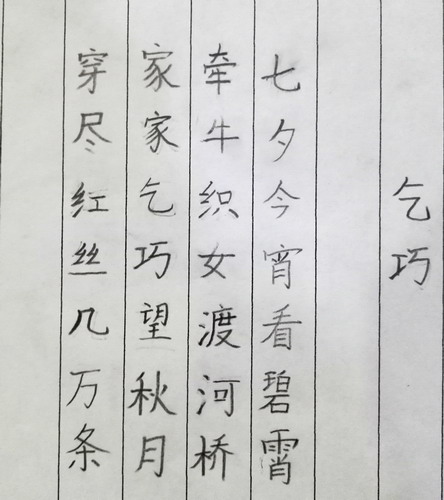 乞巧
七夕今宵看碧霄
牵牛织女渡河桥
家家乞巧望秋月
穿尽红丝几万条